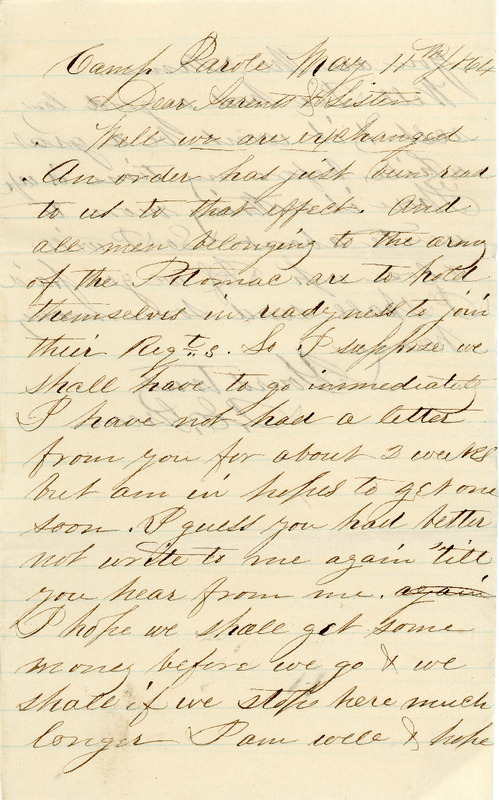 Camp Parole May 11th/64
Dear Parents & Sister
Well we are exchanged
An order has just been read
to us to that effect. And
all men belonging to the army
of the Potomac are to hold
themselves in readyness to join
their Regts. So I suppose we
shall have to go immediately
I have not had a letter
from you for about 2 weeks
but am in hopes to get one
soon. I guess you had better
not write to me again 'till
you hear from me. again
I hope we shall get some
money before we go & we
shall if we stop here much
longer I am well & hope